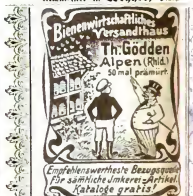 Bienenwirtschaftliches
Versandhaus
Th. Gödden
Alpen (Rhld.)
50 mal prämiirt.
Empfehlenswertheste Bezugsquelle
für sämtliche Imkerei-Artikel.
Kataloge gratis!